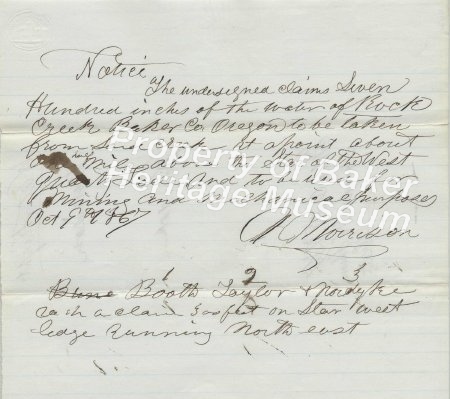 Notice
The undersigned claims Seven
Hundred inches of the water of Rock
Creek Baker Co. Oregon to be taken
from at a point about
half Mile above the Star of the West
And to be used for
Mining and Mechanical purposes
Oct 9th 1867
Morrison
Property of Baker
Heritage Museum
1 2 3
Booth Taylor & Nordyke
each a claim 300 feet on Star West
ledge Running North east